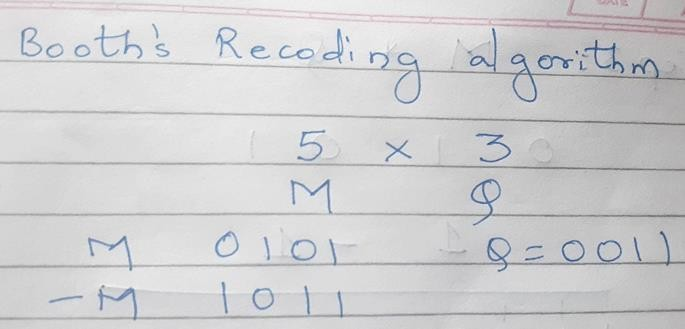 Booth's Recoding algorithm
5 × 3
M Q
M 0101 Q = 0011
-M 1011